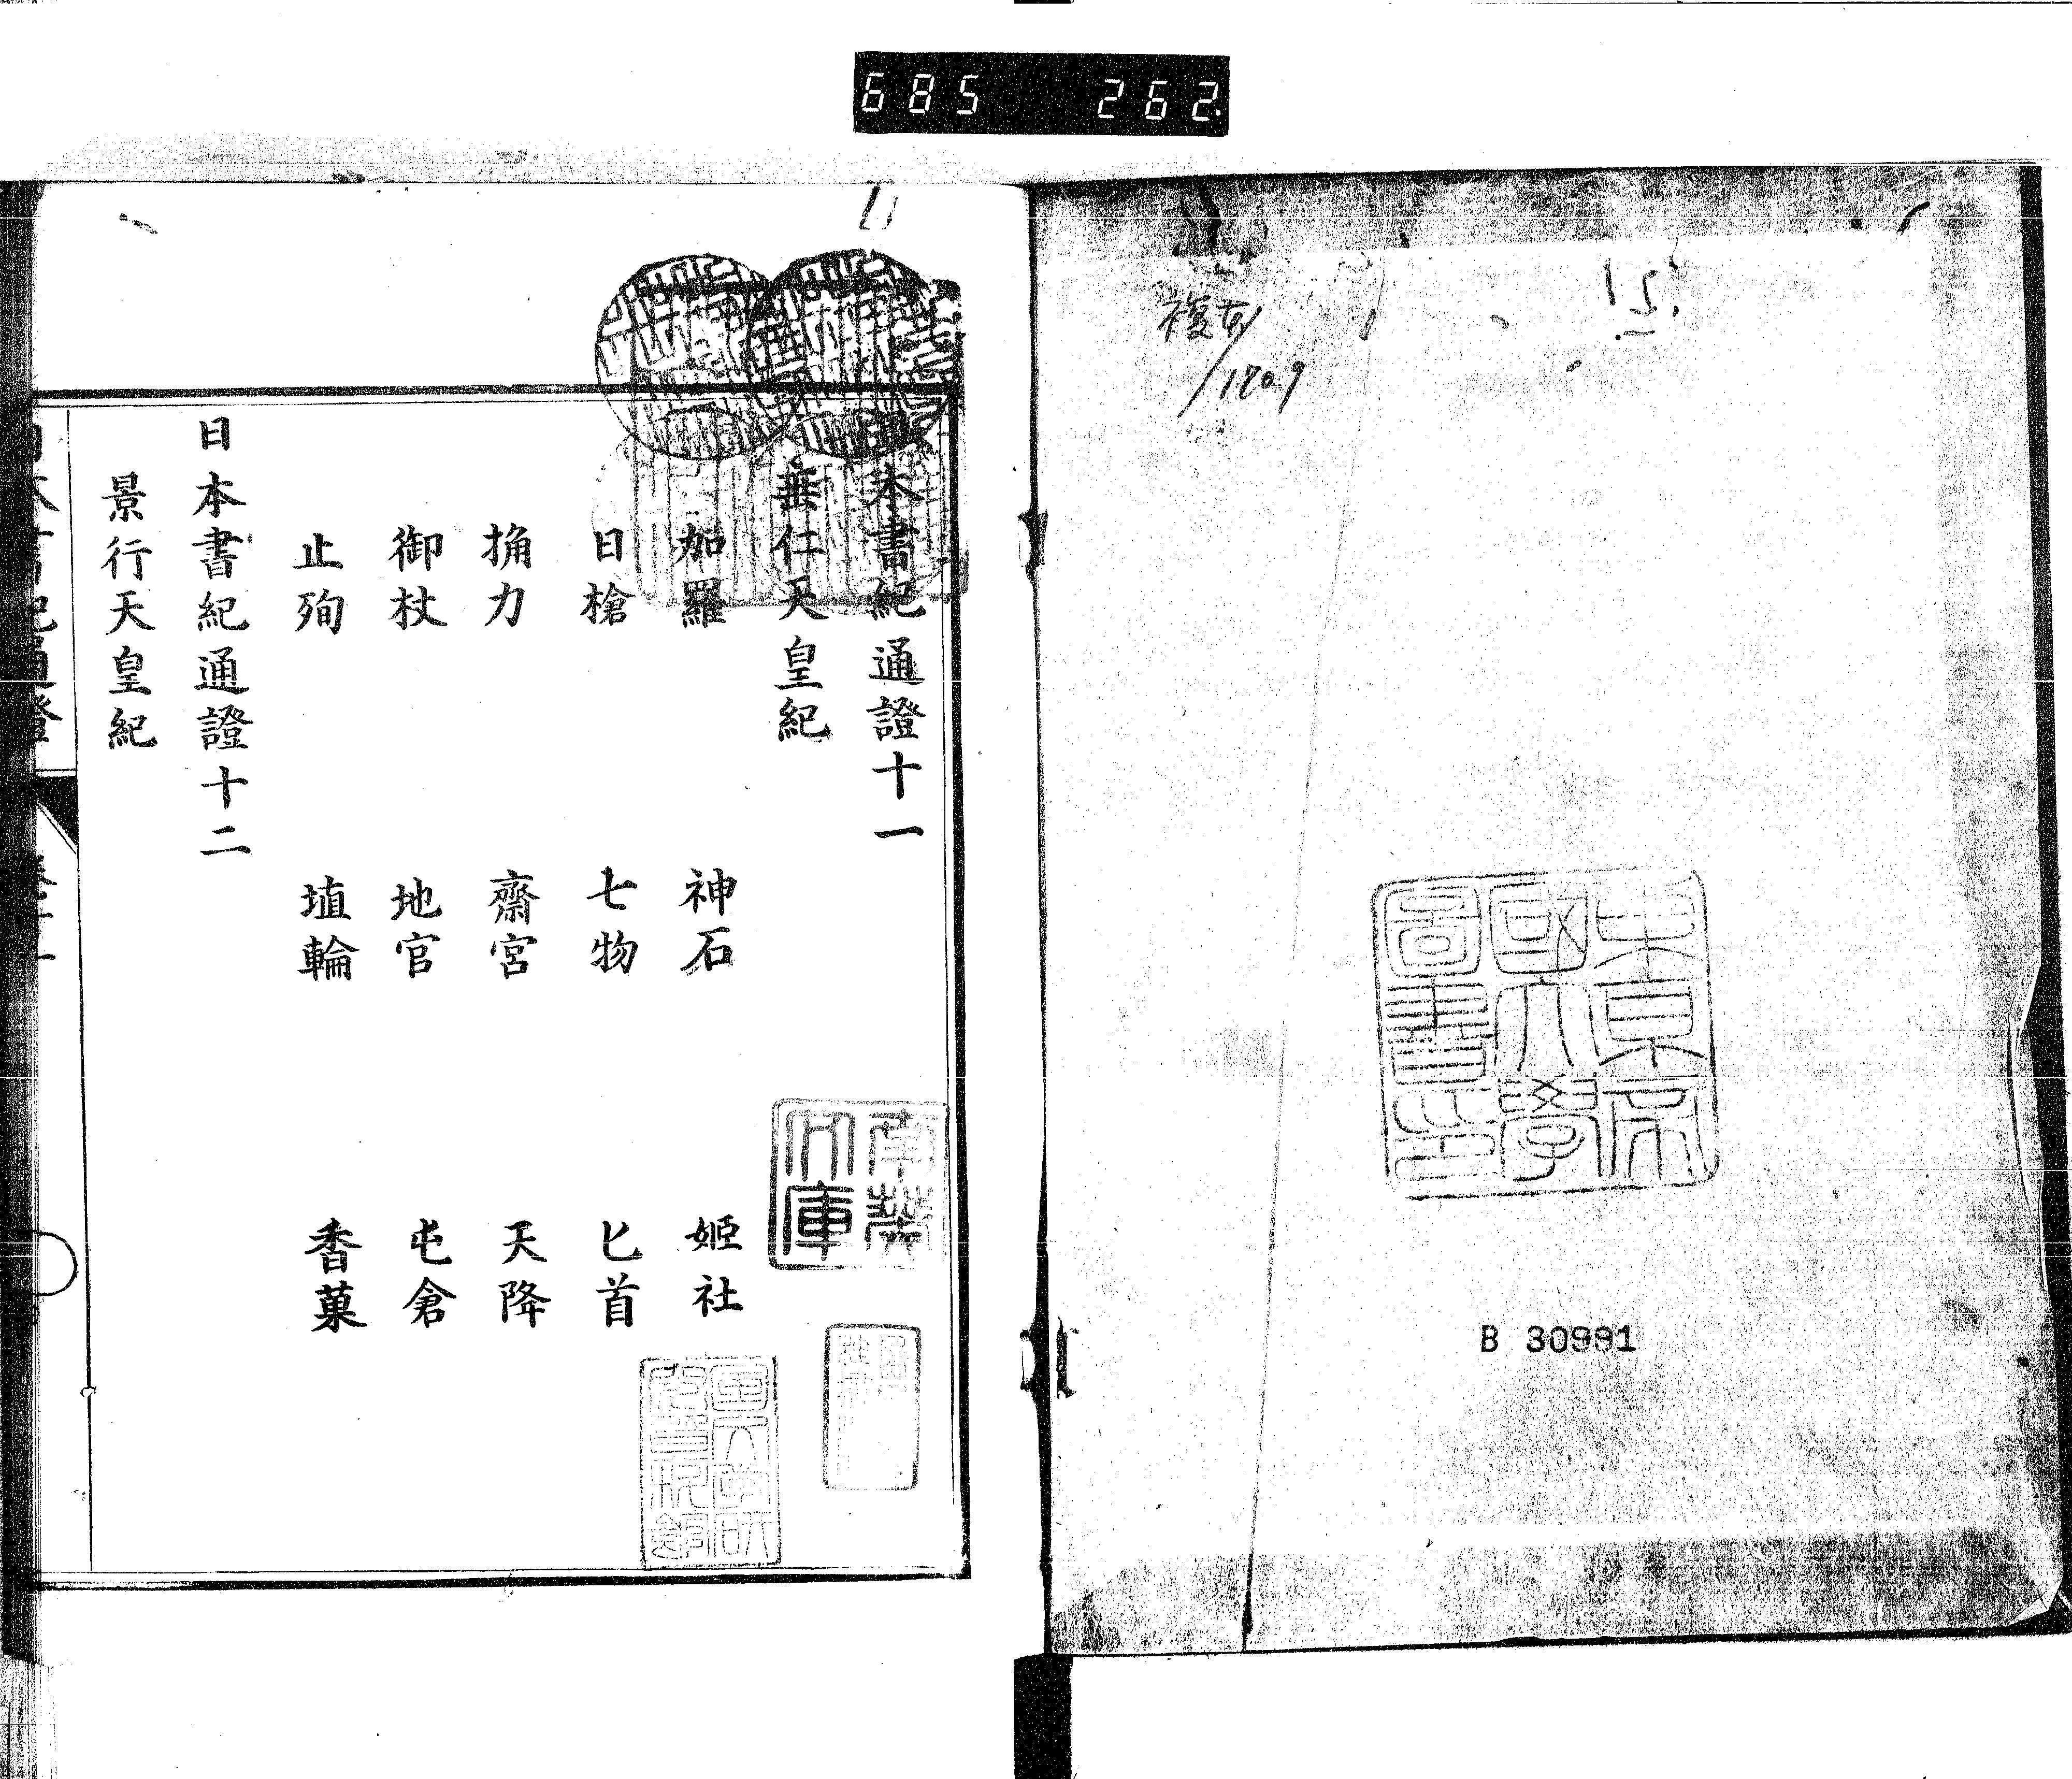 685 262
15
複刻
1709
東京帝
國大學
圖書印
B 30991
日本書紀通證十一
垂仁天皇紀
加羅 神石 姬社
日槍 七物 匕首
捔力 齋宮 天降
御杖 地官 屯倉
止殉 埴輪 香菓
日本書紀通證十二
景行天皇紀
南葵
文庫
日本書紀通證